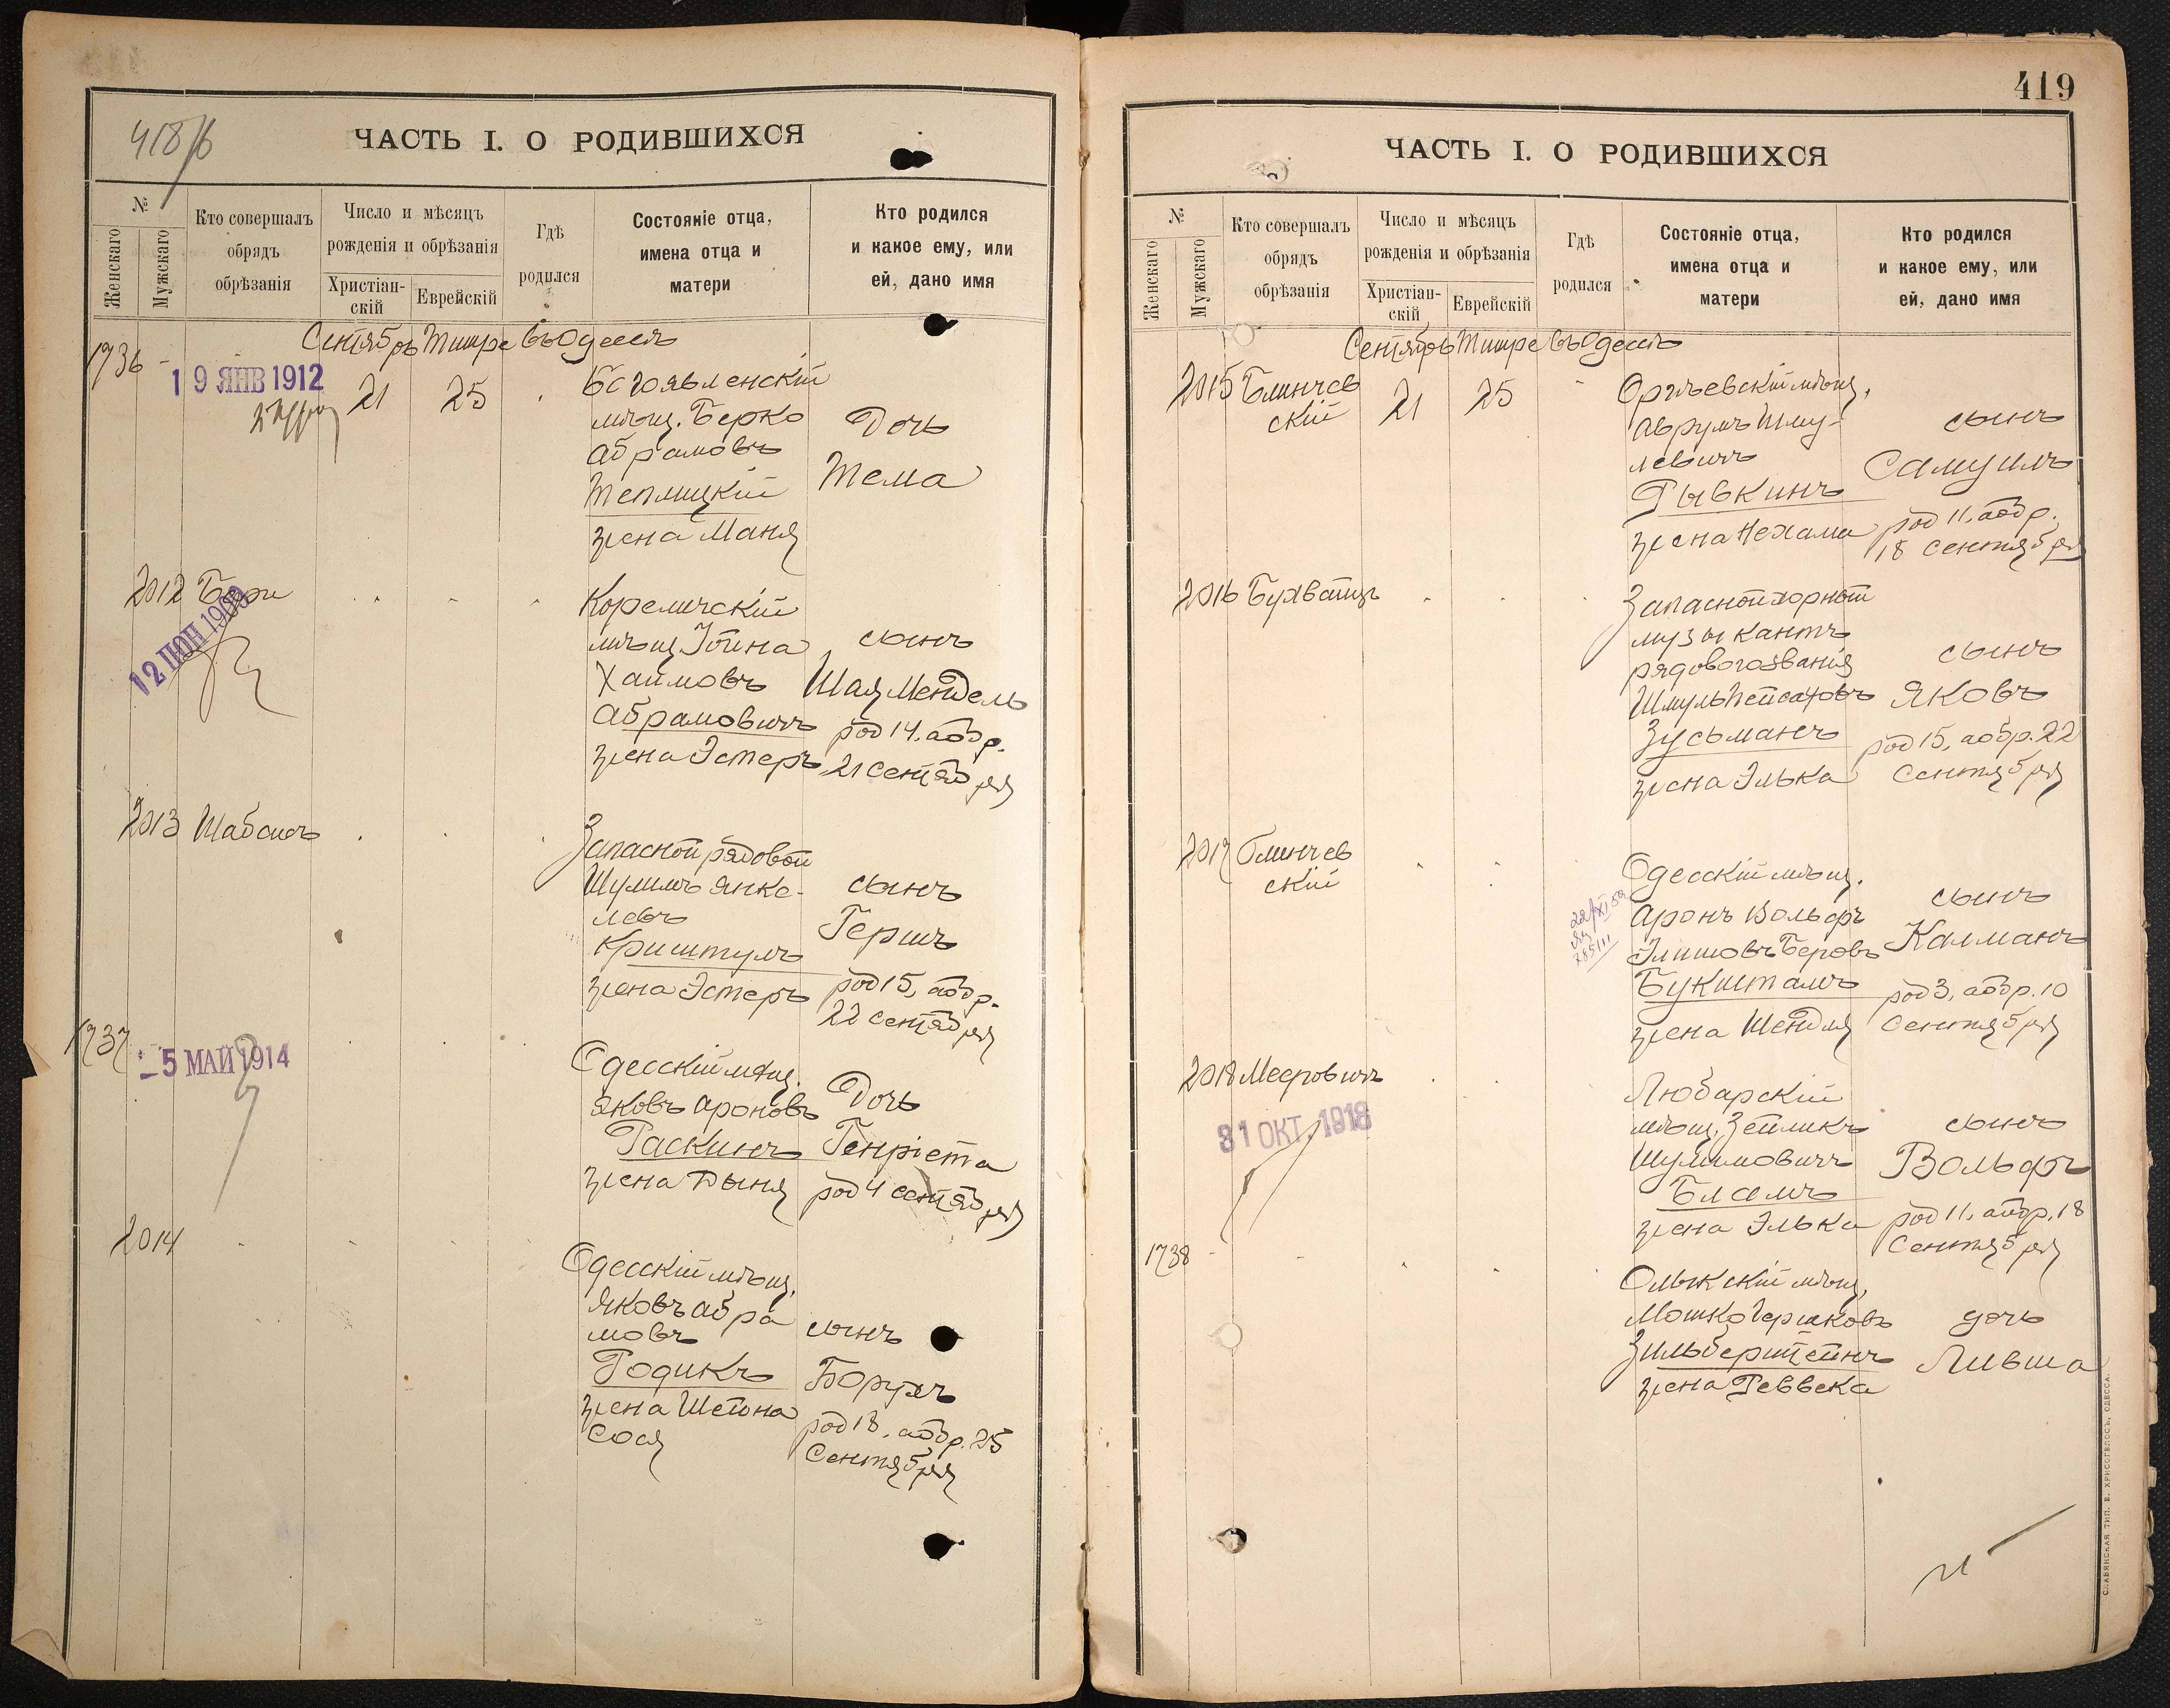 418/б
ЧАСТЬ I. О РОДИВШИХСЯ
№
Женскаго
Мужскаго
Кто совершалъ
обрядъ
обрѣзанія
Число и мѣсяцъ
рожденія и обрѣзанія
Христіан-
скій
Еврейскій
Гдѣ
родился
Состояніе отца,
имена отца и
матери
Кто родился
и какое ему, или
ей, дано имя
Сентябрь Тишре въ Одессѣ
1736 -
19 ЯНВ 1912
21 25
Богоявленскій
мѣщ. Берко
Абрамовъ
Теплицкій
жена Маня
Дочь
Тема
2012
12 ІЮН 1909
Кореличскій
мѣщ. Іойна
Хаимовъ
Абрамовичъ
жена Эстеръ
сынъ
Шая Мендель
род 14, а обр.
21 сентября
2013 Шабсисъ
Запасной рядовой
Шулимъ Янке-
левъ
Криштулъ
жена Эстеръ
сынъ
Гершъ
род 15, а обр.
22 сентября
1737
- 5 МАЙ 1914
Одесскій мѣщ.
Яковъ Ароновъ
Раскинъ
жена Дыня
Дочь
Генріета
род 4 сентября
2014
Одесскій мѣщ.
Яковъ Абра
мовъ
Годикъ
жена Шейна
Сося
сынъ
Борухъ
род 18, а обр. 25
Сентября
419
ЧАСТЬ I. О РОДИВШИХСЯ
№
Женскаго
Мужскаго
Кто совершалъ
обрядъ
обрѣзанія
Число и мѣсяцъ
рожденія и обрѣзанія
Христіан-
скій
Еврейскій
Гдѣ
родился
Состояніе отца,
имена отца и
матери
Кто родился
и какое ему, или
ей, дано имя
Сентябрь Тишре въ Одессѣ
2015 Блинчев
скій
21 25
Оргѣевскій мѣщ.
Аврумъ Шму-
левичъ
Рывкинъ
жена Нехама
сынъ
Самуилъ
род 11, а обр.
18 сентября
2016 Бухбиндеръ
Запасной хорный
музыкантъ
рядового званія
Шмуль Пейсаховъ
Зусьманъ
жена Элька
сынъ
Яковъ
род 15, а обр. 22
Сентября
2017 Блинчев
скій
Одесскій мѣщ.
Аронъ Вольфъ
Элишовъ Беровъ
Букшталъ
жена Шейндля
сынъ
Калманъ
род 3, а обр. 10
Сентября
2018 Мееровичъ
31 ОКТ. 1918
Любарскій
мѣщ. Зейликъ
Шулимовичъ
Бламъ
жена Элька
сынъ
Вольфъ
род 11, а обр. 18
Сентября
1738 -
Олыкскій мѣщ.
Мошко Гершковъ
Зильберштейнъ
жена Реввека
дочь
Ливша
СЛАВЯНСКАЯ ТИП. Е. ХРИСОГЕЛОСЪ, ОДЕССА.